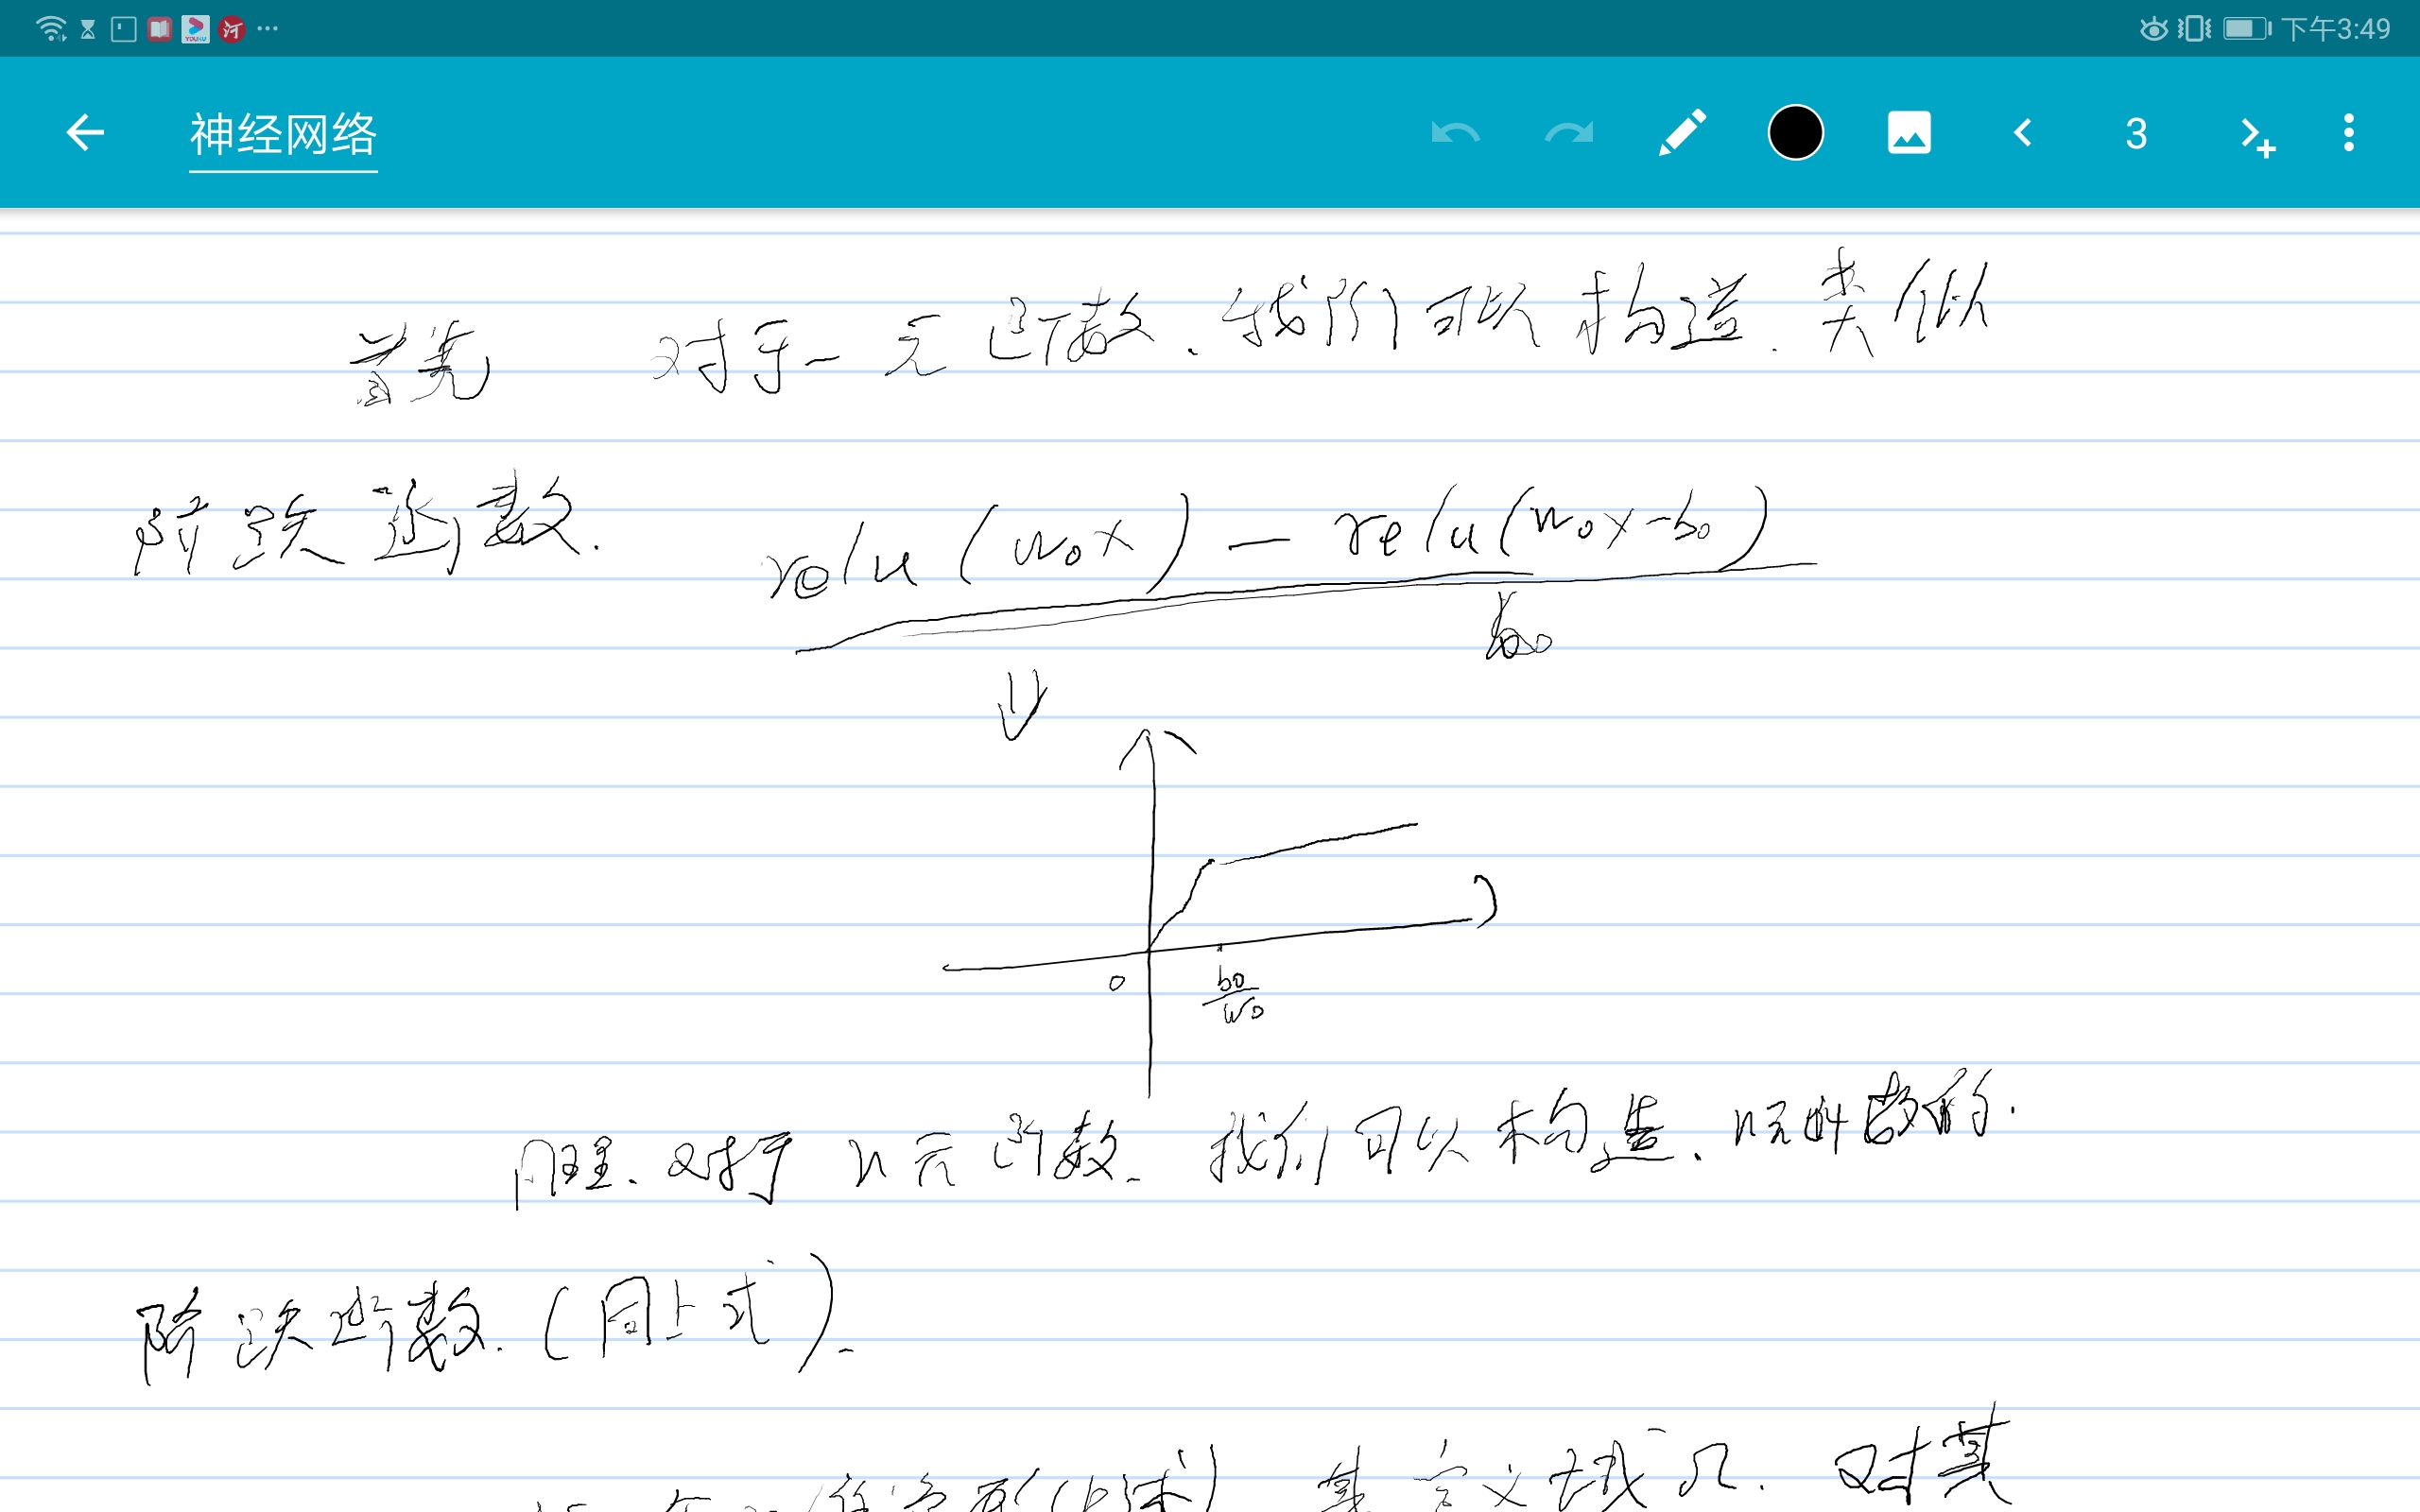 下午3:49
神经网络 3
首先 对于一元函数.我们可以构造.类似
阶跃函数. relu(w₀x) - relu(w₀x-b₀)
b₀
0
b₀
w₀
同理.对于n元函数.我们可以构造.n元函数的.
阶跃函数.(同上式).
其定义域 Ω. 对其